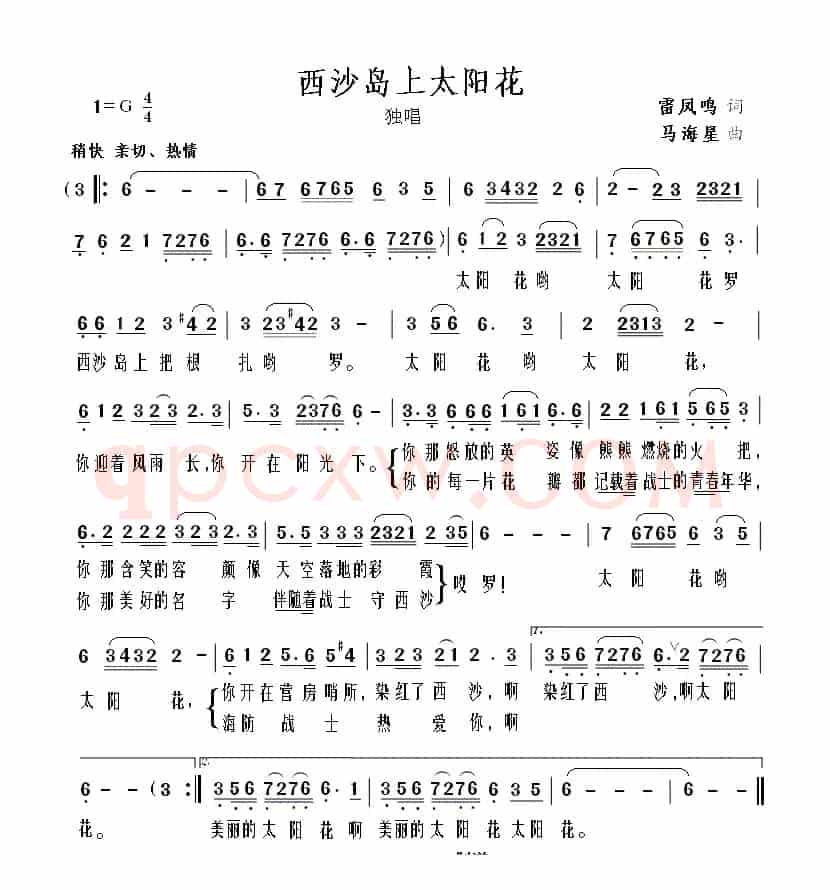 西沙岛上太阳花
1=G 4/4
独唱
雷凤鸣 词
马海星 曲
稍快 亲切、热情
(3 ‖: 6 - - - | 67 6765 6 35 | 6 3432 2 6 | 2 - 23 2321 |
7 6 2 1 7276 | 6·6 7276 6·6 7276) | 6 123 2321 | 7 6765 6 3· |
太阳 花哟 太阳 花罗
66 12 3 #42 | 3 23#42 3 - | 3 56 6· 3 | 2 2313 2 - |
西沙岛上把根 扎哟 罗。 太阳 花哟 太阳 花,
612 323 2·3 | 5·3 2376 6 - | 3·3 666 161 6·6 | 22 161 565 3 |
你迎着风雨 长,你 开在 阳光 下。 你那怒放的英 姿像 熊熊 燃烧的火 把,
你的每一片花 瓣都 记载着战士的青春年华,
qpcxw.com
6·2 222 323 2·3 | 5·5 333 2321 235 | 6 - - - | 7 6765 6 35 |
你那含笑的容 颜像 天空落地的彩 霞 哎罗! 太阳 花哟
你那美好的名 字 伴随着战士 守西沙
6 3432 2 - | 612 5·6 5#4 | 3 23 2 2·3 | 1. 356 7276 6·2 7276 |
太阳 花, 你开在营房哨所, 染红了西沙,啊 染红了西 沙,啊太阳
海防 战士 热爱 你,啊
6 - - (3 :‖ 2. 356 7276 6·1 | 356 7276 235 | 6 - - - | 6 - - ‖
花。 美丽的太阳花啊 美丽的太阳花太阳花。